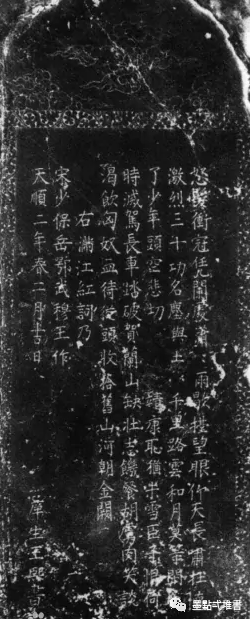 怒髮衝冠凭闌處瀟雨歇擡望眼仰天長嘯壯
激烈三十功名塵與土千里路雲和月莫等閑
了少年頭空悲切 靖康恥猶未雪臣子憾何
時滅駕長車踏破賀蘭山缺壯志饑飡胡虜肉笑談
渴飲匈奴血待從頭收拾舊山河朝金闕
右滿江紅詞乃
宋少保岳鄂武穆王作
天順二年春二月吉日
庠生王熙書
墨點式堆書